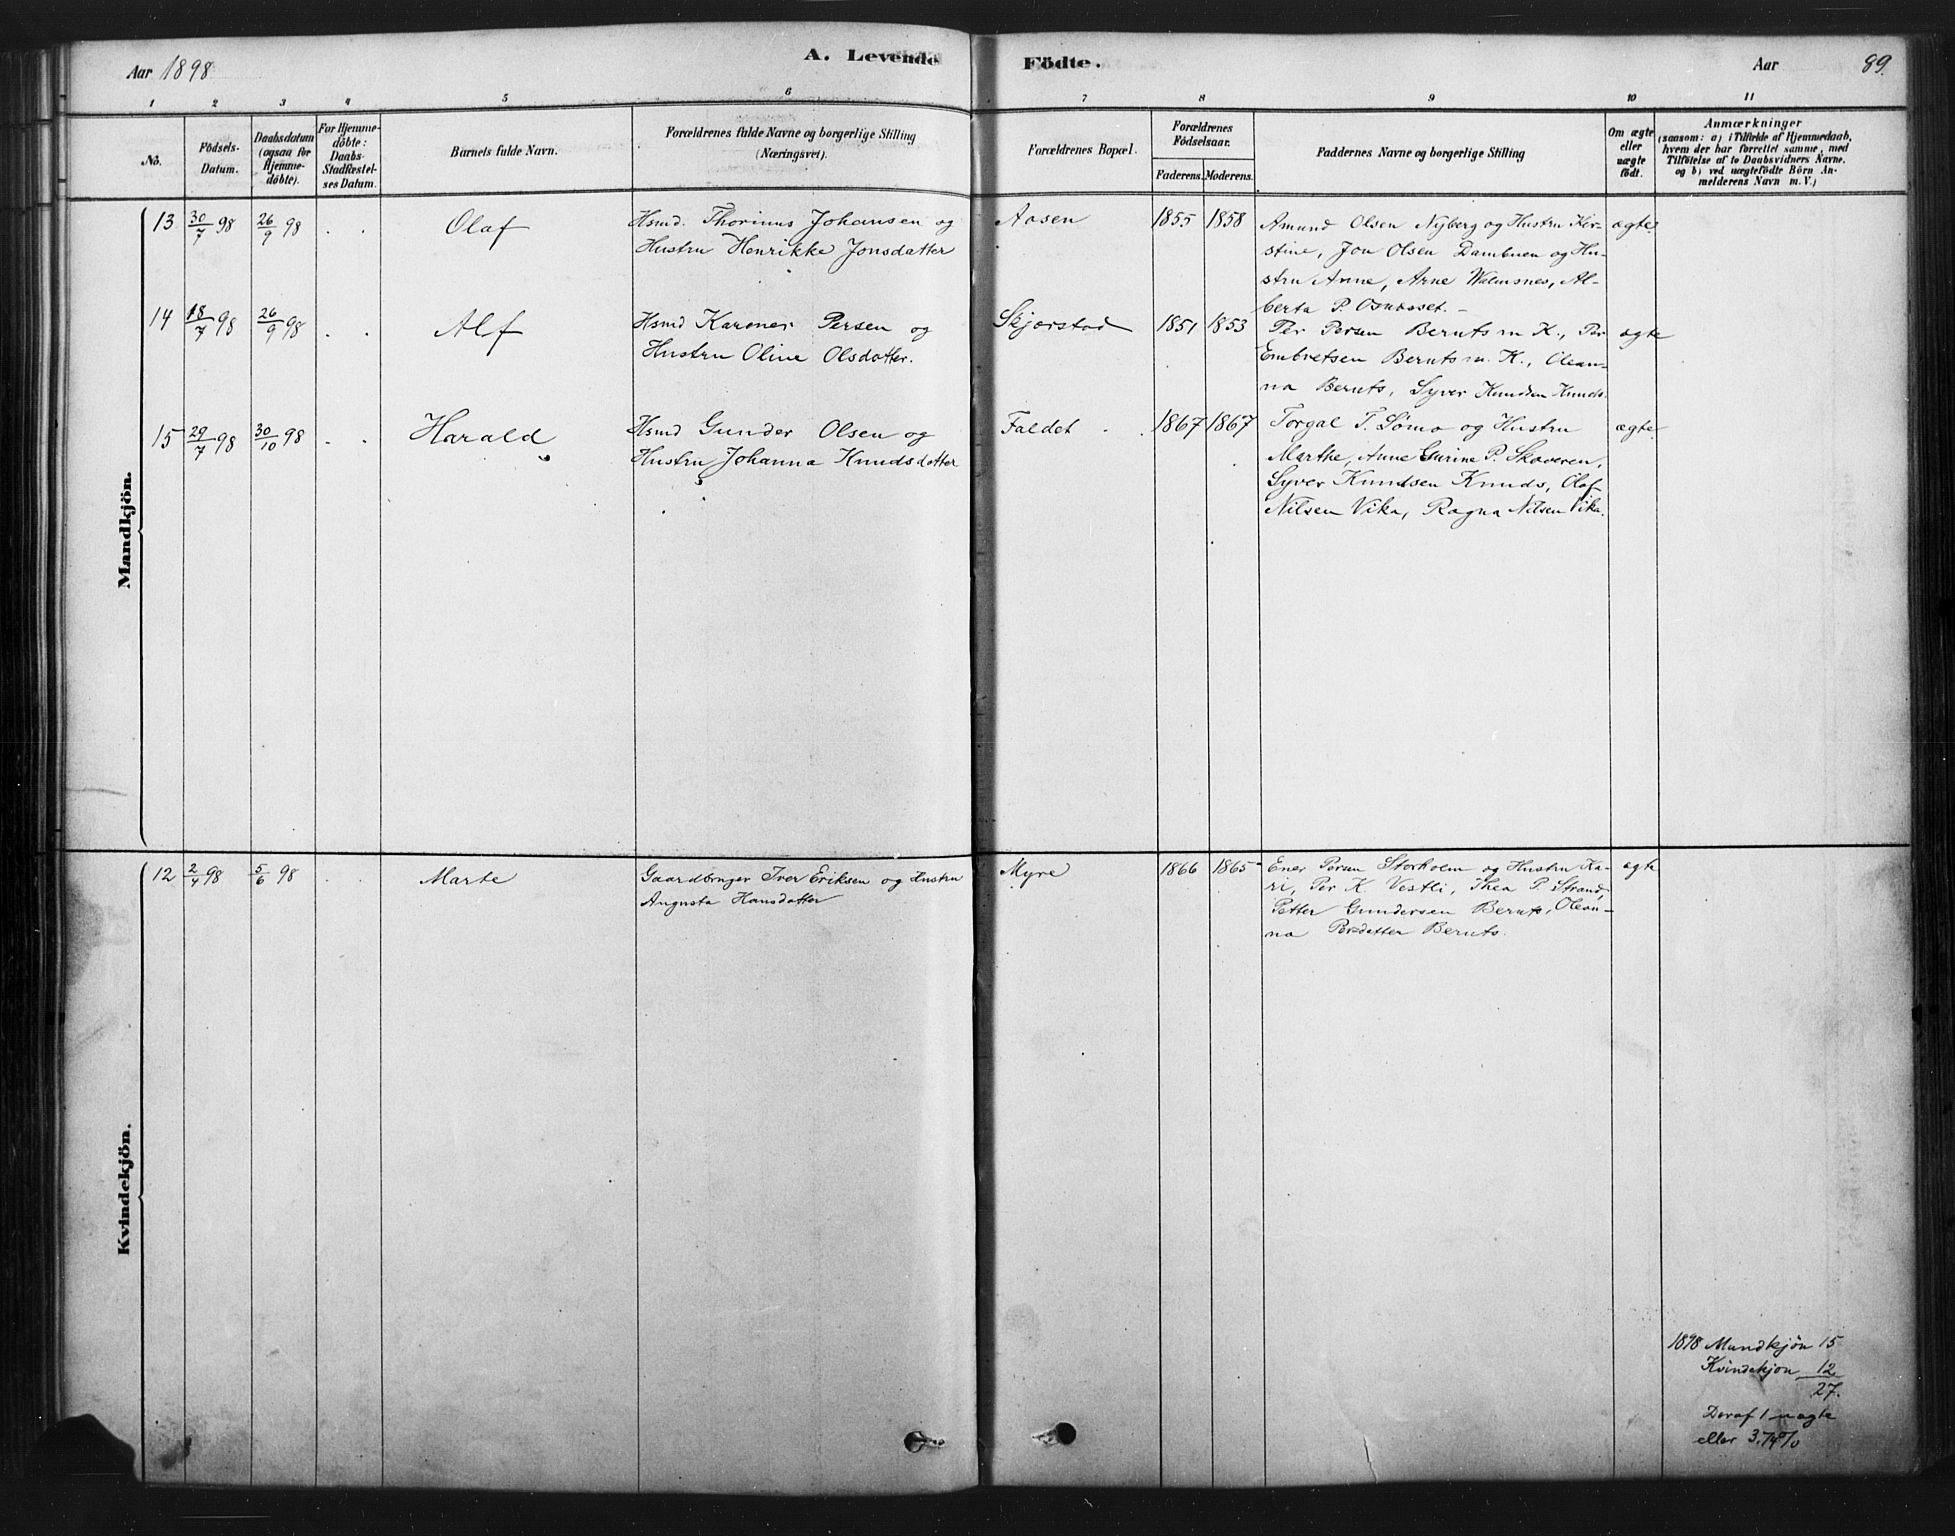 Aar 1898
A. Levende Födte.
Aar 89.
1 2 3 4 5 6 7 8 9 10 11
No.
Födsels-Datum.
Daabsdatum (ogsaa for Hjemme-döbte).
For Hjemme-döbte: Daabs-Stadfæstel-ses Datum.
Barnets fulde Navn.
Forældrenes fulde Navne og borgerlige Stilling
(Næringsvei).
Forældrenes Bopæl.
Forældrenes Födselsaar.
Faderens. Moderens.
Faddernes Navne og borgerlige Stilling
Om ægte eller uægte födt.
Anmærkninger
(saasom: a) i Tilfælde af Hjemmedaab,
hvem der har forrettet samme, med
Tilföielse af to Daabsvidners Navne.
og b) ved uægtefödte Börn An-
melderens Navn m. V.)
Mandkjön.
13 30/7 98 26/9 98 . . Olaf Hsmd. Thorinus Johansen og Aasen 1855 1858 Amund Olsen Nyberg og Hustru Kir- ægte.
Hustru Henrikke Jonsdatter stine, Jon Olsen Dambuen og Hu-
stru Anne, Arne Walmsnes, Al-
berta P. Osnæsset. –
14 18/7 98 26/9 98 . . Alf Hsmd Karenes Persen og Skjærstad 1851 1853 Per Persen Bernts m K., Per ægte
Hustru Oline Olsdatter. Embretsen Bernts m. K., Olean-
na Bernts, Syver Knudsen Knuds.
15 29/7 98 30/10 98 . . Harald Hsmd Gunder Olsen og Faldet . . 1867 1867 Torgal T. Sömo og Hustru ægte.
Hustru Johanna Knudsdatter Marthe, Anne Gurine P. Skaveren,
Syver Knudsen Knuds, Olaf
Nilsen Vika, Ragna Nilsen Vika.
Kvindekjön.
12 2/4 98 5/6 98 . . Marte Gaardbruger Iver Eriksen og Hustru Myre 1866 1865 Ener Persen Storholm og Hustru Ka- ægte
Augusta Hansdatter ri, Per K. Vestli, Thea P. Strand,
Petter Gundersen Bernts, Olean-
na Persdatter Bernts.
1898 Mandkjön 15
Kvindekjön 12
27.
Deraf 1 uægte
eller 3.74%